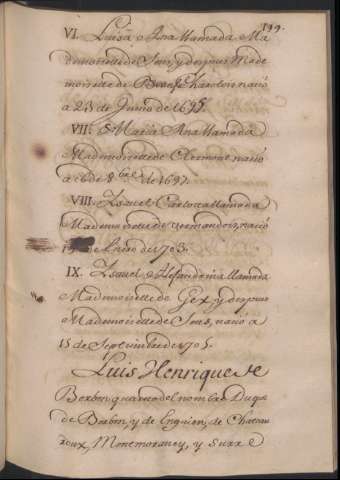 199.
VI. Luisa Ana llamada Ma
demoiselle de Sens, y despues Made
moiselle de Charolois, nacio
a 23 de Junio de 1695.
VII. Maria Ana llamada
Mademoiselle de Clermont, nacio
a 16 de 8bre de 1697.
VIII. Isavel Carlota llamada
Mademoiselle de Vermandois, nacio
de Enero de 1703.
IX. Isavel Alejandrina llamada
Mademoiselle de Gex, y despues
Mademoiselle de Sens, nacio a
15 de Septiembre de 1705.
Luis Henrique
Borbon quarto del nombre Duque
de Borbon, y de Enguien, de Chateau
roux, Montmorancy, y